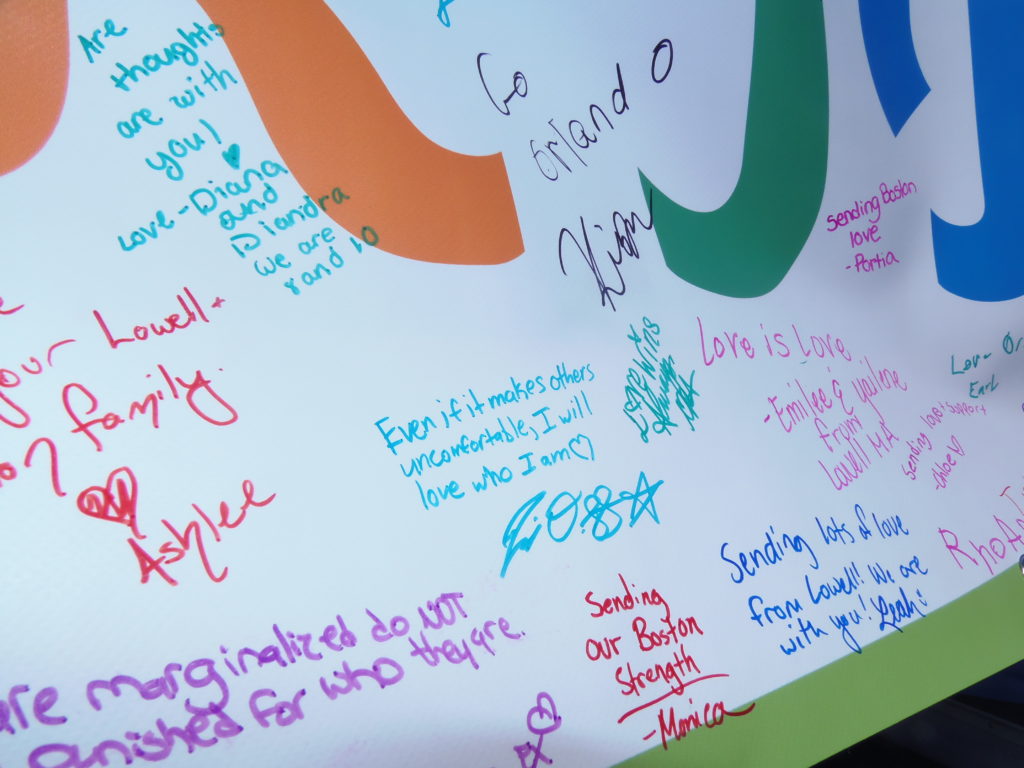 Are
thoughts
are with
you!
Love - Diana
and
Diandra
we are
8 and 10
Go
Orlando
Kism
Sending Boston
love
- Portia
your Lowell +
family.
Ashlee
Even if it makes others
uncomfortable, I will
love who I am
Love Wins
Always
Love is Love
- Emilee &
from
Lowell MA
Sending love & support
- Chloe
Earl
Sending lots of love
from Lowell! We are
with you! Leah
Sending
our Boston
Strength
- Monica
are marginalized do NOT
punished for who they are.